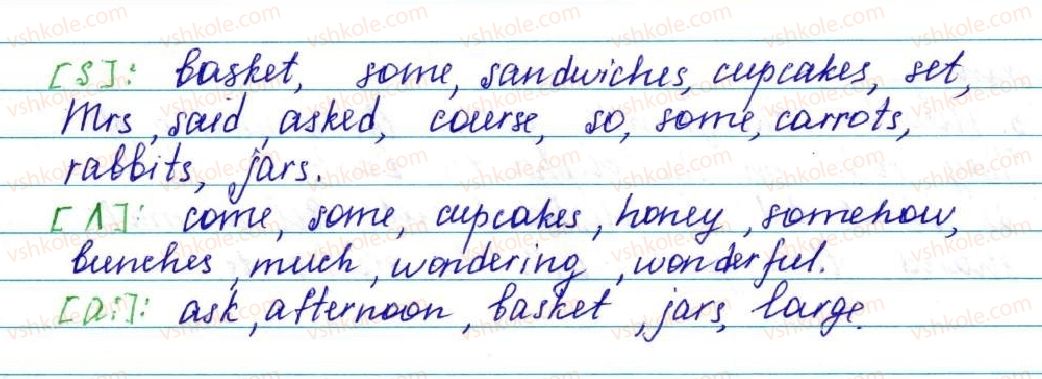 [s]: basket, some, sandwiches, cupcakes, set,
Mrs, said, asked, course, so, some, carrots,
rabbits, jars.
[ʌ]: come, some, cupcakes, honey, somehow,
bunches, much, wondering, wonderful.
[a:]: ask, afternoon, basket, jars, large.